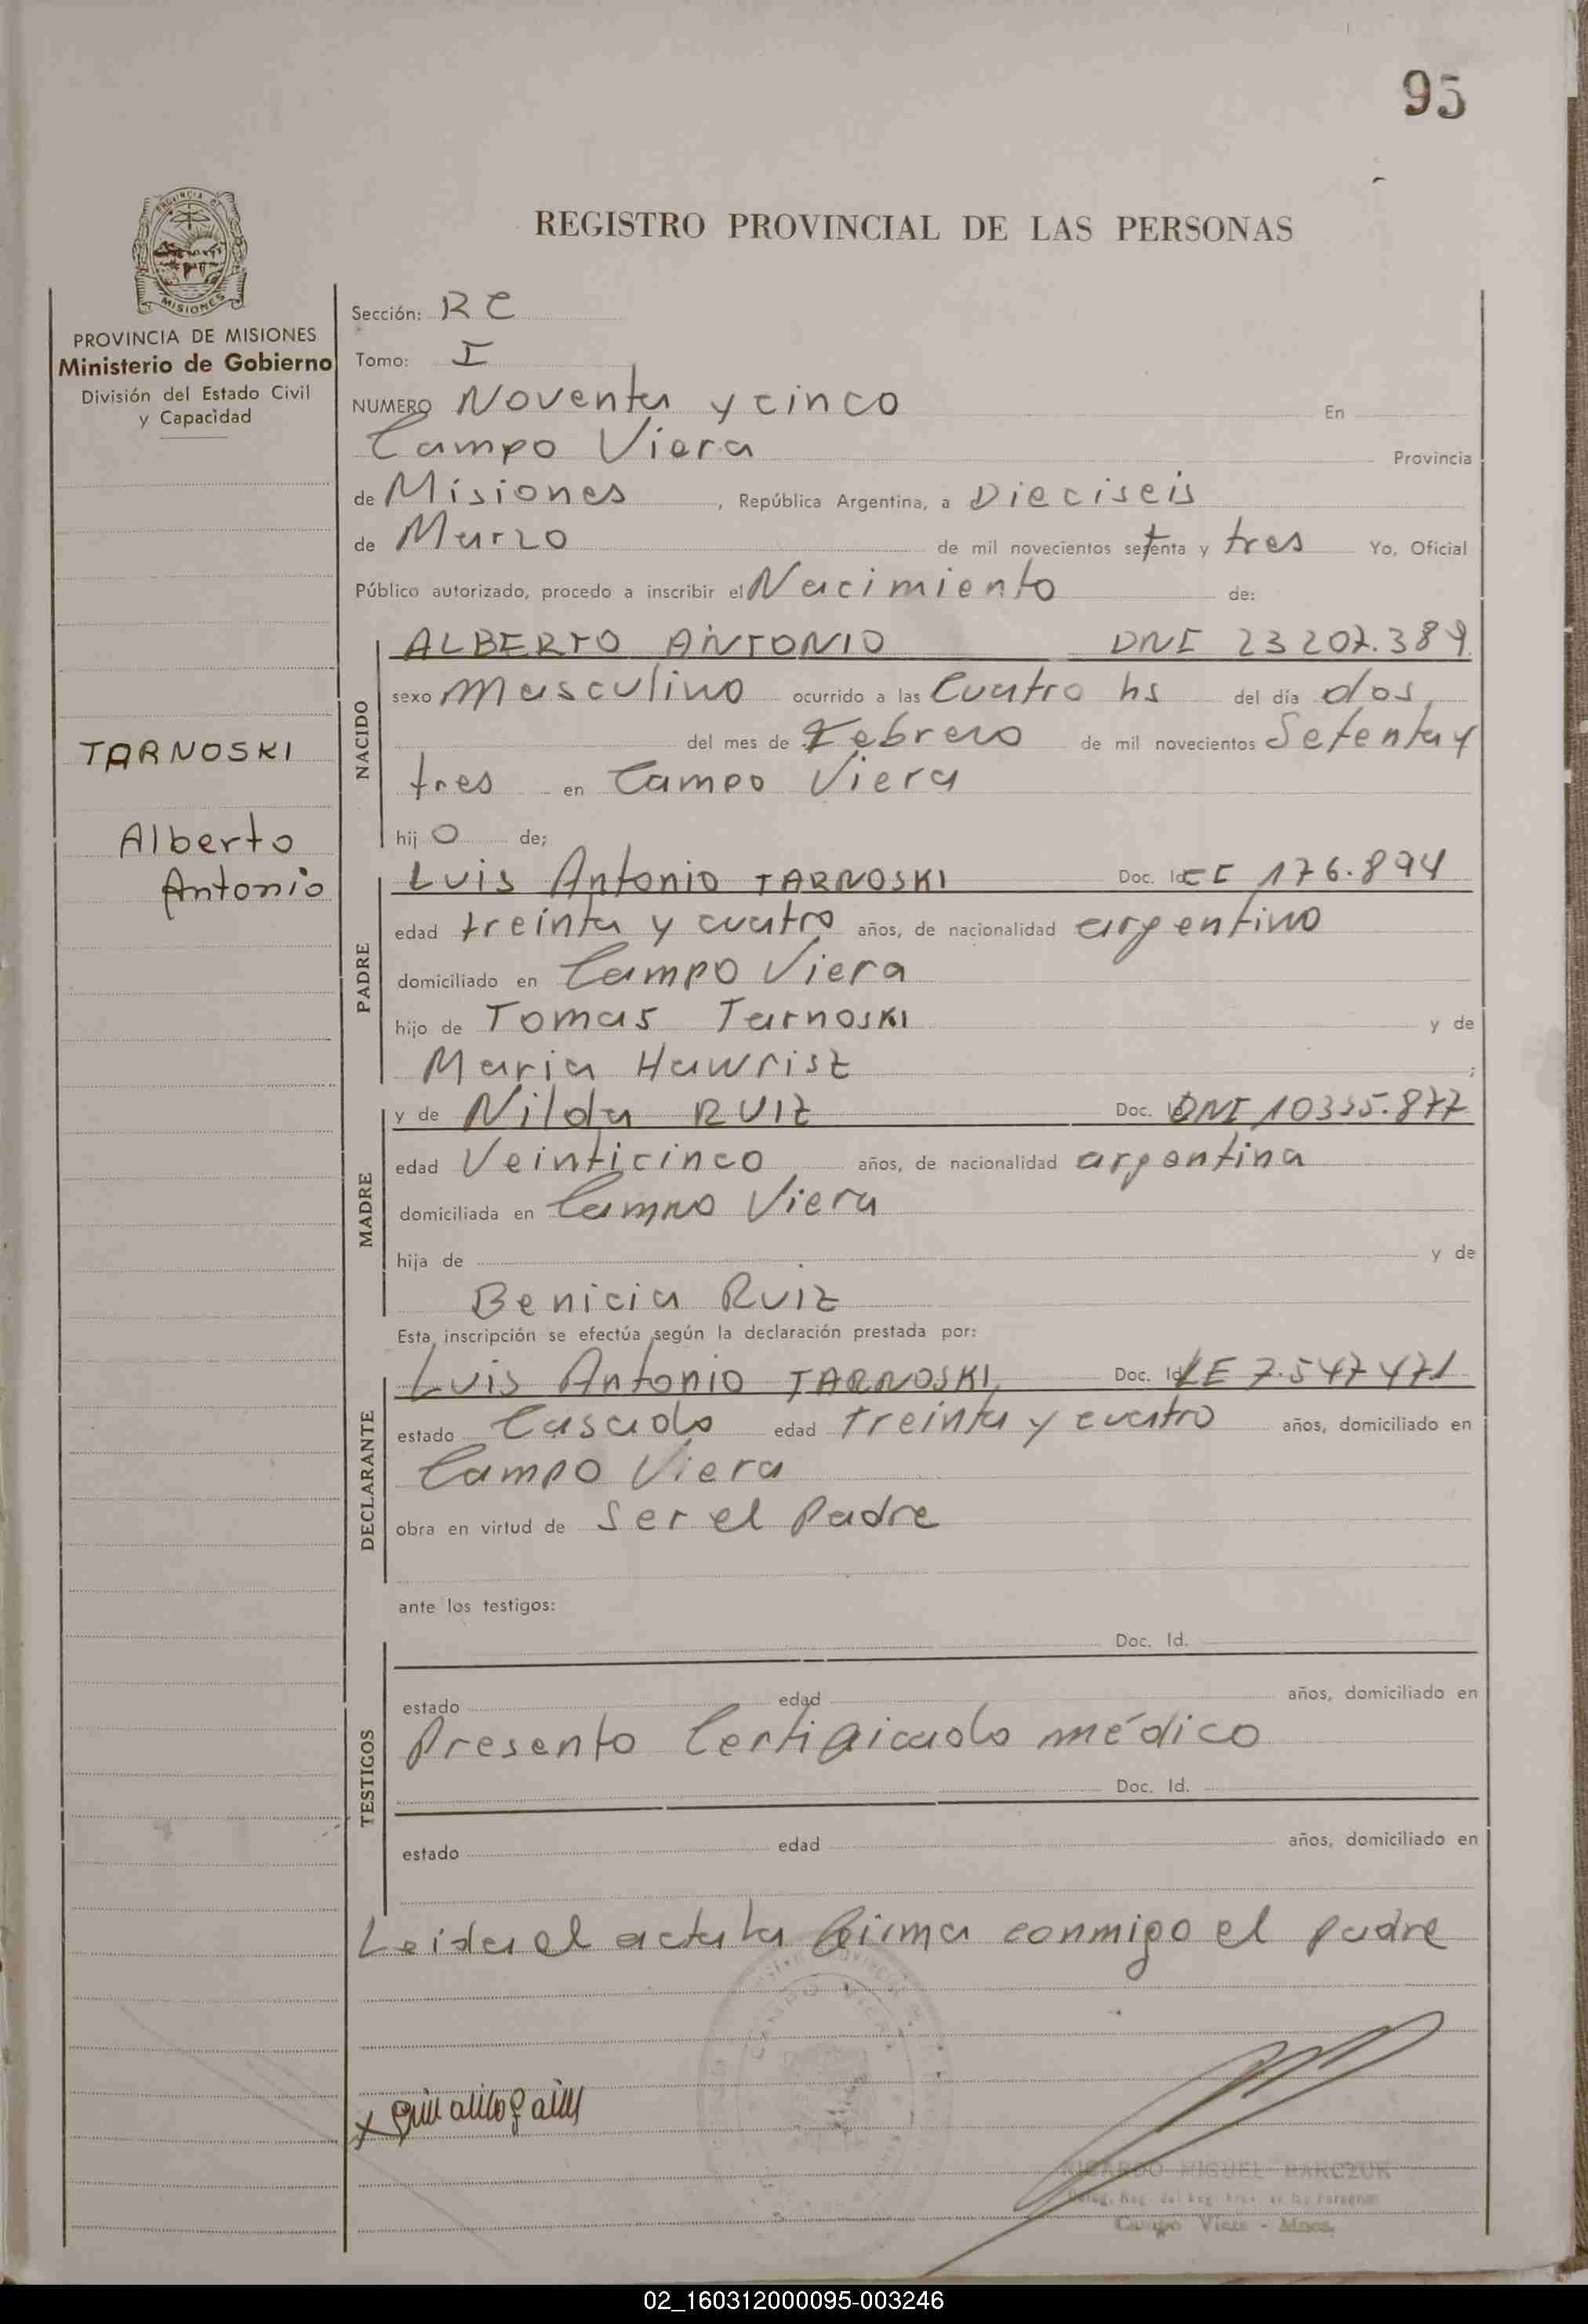 95
PROVINCIA DE
MISIONES
PROVINCIA DE MISIONES
Ministerio de Gobierno
División del Estado Civil
y Capacidad
TARNOSKI
Alberto
Antonio
REGISTRO PROVINCIAL DE LAS PERSONAS
Sección: RC
Tomo: I
NUMERO Noventa y cinco En
Campo Viera Provincia
de Misiones, República Argentina, a Dieciseis
de Marzo de mil novecientos setenta y tres Yo, Oficial
Público autorizado, procedo a inscribir el Nacimiento de:
NACIDO
ALBERTO ANTONIO DNI 23 207.389
sexo Masculino ocurrido a las Cuatro hs del día dos
del mes de Febrero de mil novecientos Setenta y
tres en Campo Viera
hijo de;
PADRE
Luis Antonio TARNOSKI Doc. Id. CI 176.894
edad treinta y cuatro años, de nacionalidad argentino
domiciliado en Campo Viera
hijo de Tomas Tarnoski y de
Maria Hawrisz;
MADRE
y de Nilda RUIZ Doc. DNI 10335.877
edad Veinticinco años, de nacionalidad argentina
domiciliada en Campo Viera
hija de y de
Benicia Ruiz
Esta inscripción se efectúa según la declaración prestada por:
DECLARANTE
Luis Antonio TARNOSKI Doc. Id. LE 7.547471
estado Casado edad treinta y cuatro años, domiciliado en
Campo Viera
obra en virtud de ser el Padre
ante los testigos:
TESTIGOS
Doc. Id.
estado edad años, domiciliado en
Presento Certificado médico
Doc. Id.
estado edad años, domiciliado en
Leida el acta la firma conmigo el padre
RICARDO MIGUEL BARCZUK
Campo Viera - Mnes.
02_160312000095-003246